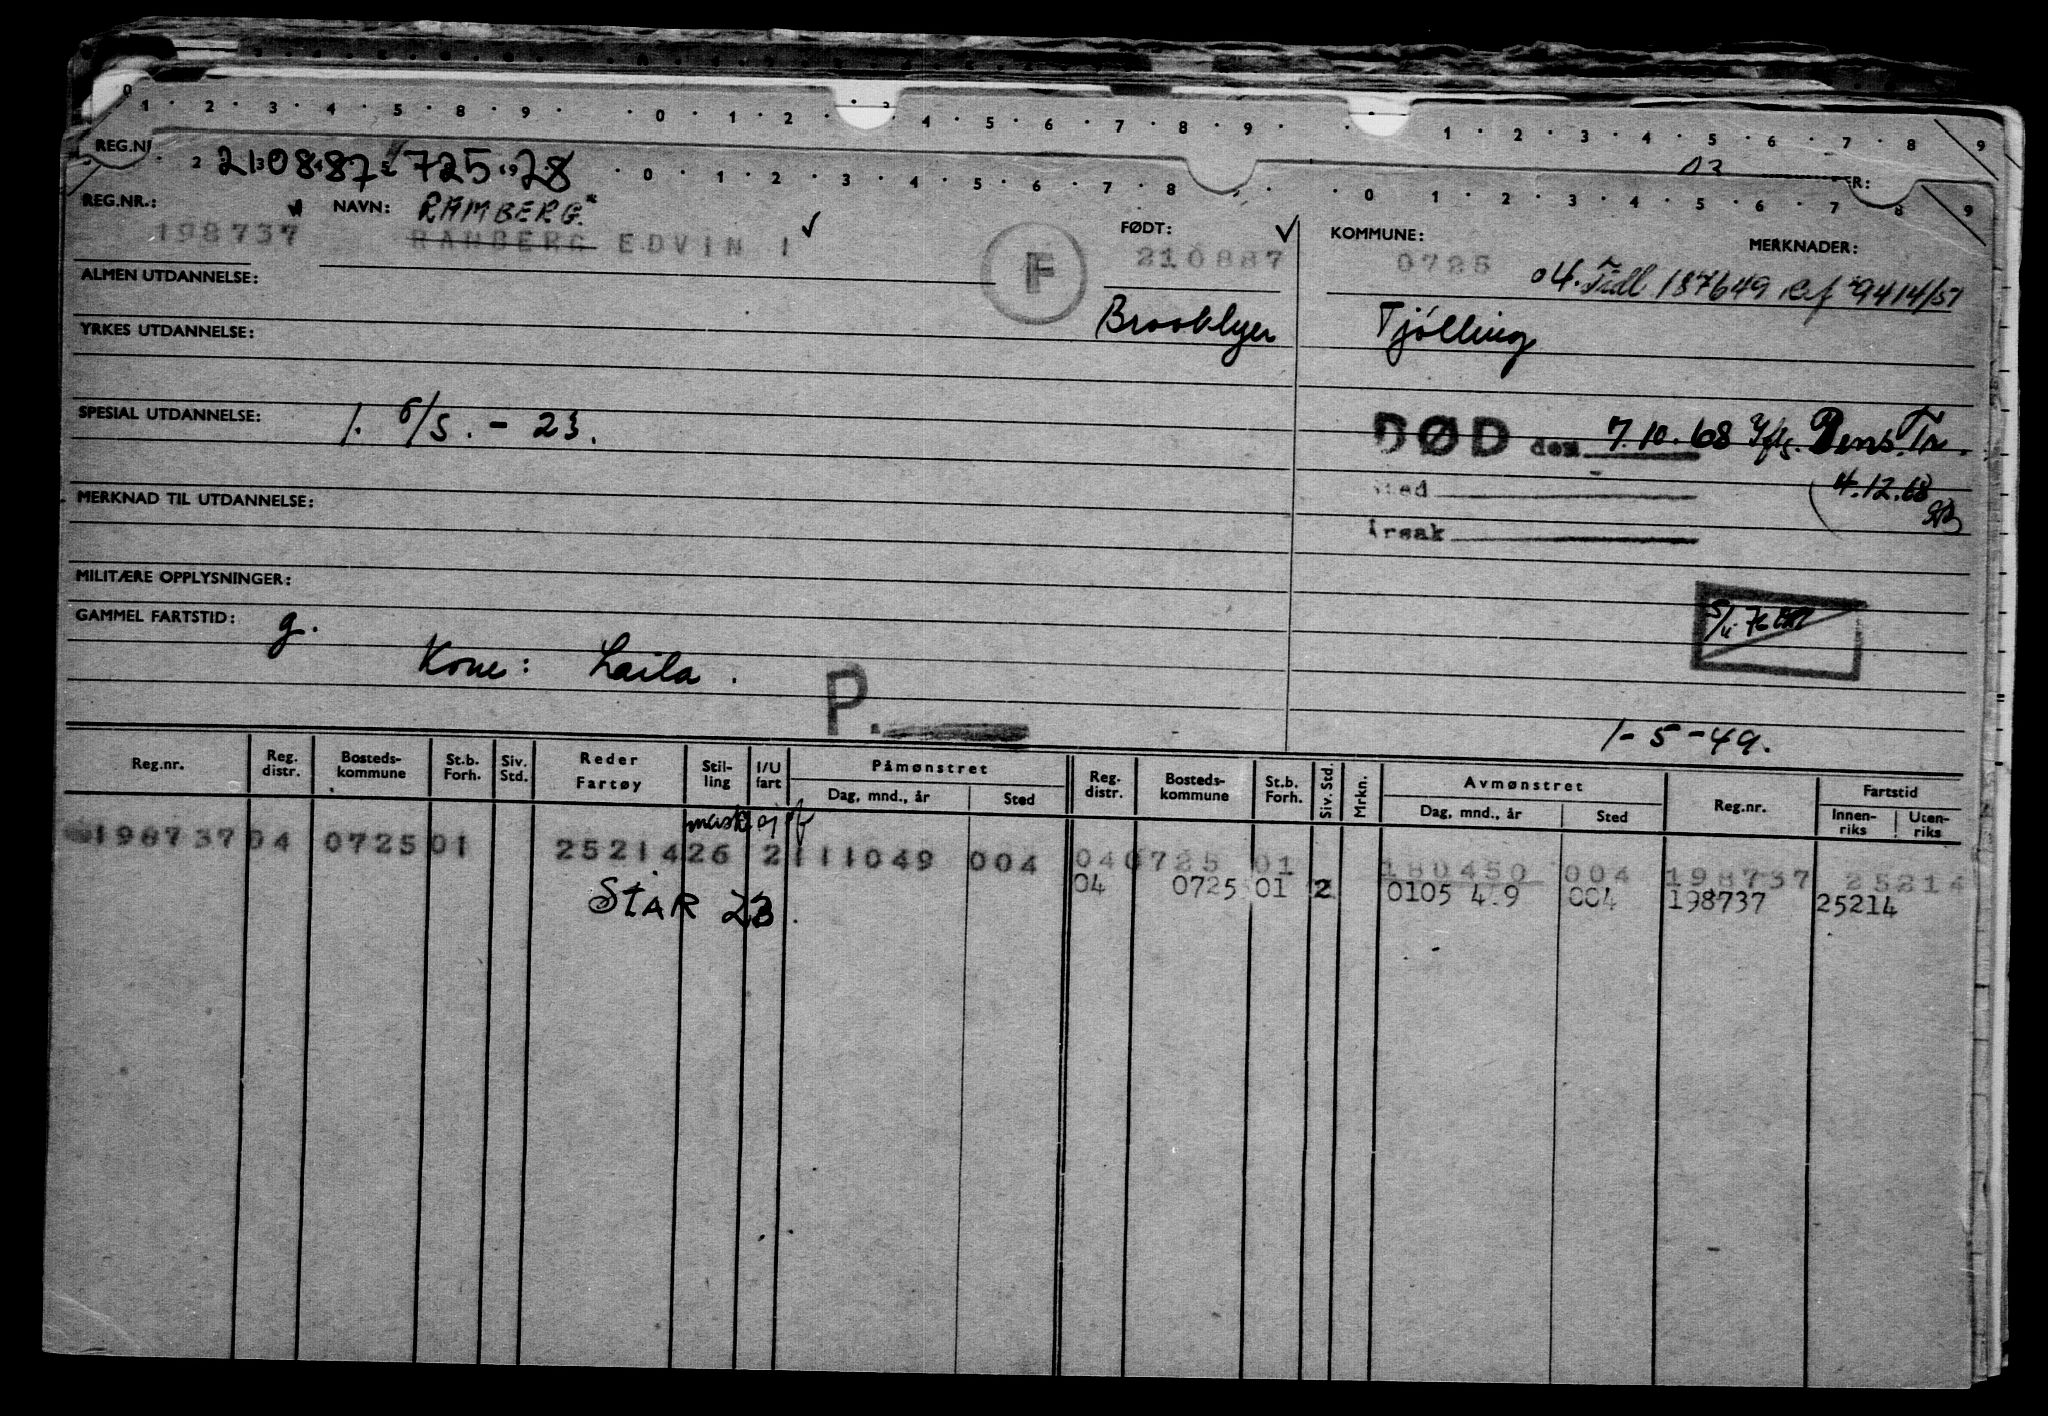 0 1 2 3 4 5 8 9 0 1 2 3 4 5 6 7 8 9 1 2 3 4 5 6 7 8 9
REG.NR
2 0 1 2 3 4 5 6 7 8 0 1 2 3 4 5 6 7 8 9
210887 725 28
REG.NR.: NAVN: RAMBERG FØDT: KOMMUNE: MERKNADER:
198737 RAHBERG EDVIN I F 210887 0725 04. Tidl 187649 cf 9414/57
ALMEN UTDANNELSE:
YRKES UTDANNELSE: Tjölling
SPESIAL UTDANNELSE: 1. 6/5. - 23. DØD den 7.10.68 Iflg. Pens.Tr.
Sted 4.12.68
MERKNAD TIL UTDANNELSE:
Årsak
MILITÆRE OPPLYSNINGER:
GAMMEL FARTSTID: g. 5/11 76
Kone: Laila.
P.
1-5-49.
Reg.nr. Reg. distr. Bosteds- kommune St.b. Forh. Siv. Std. Reder Fartøy Stil- ling I/U fart Påmønstret Dag, mnd., år Sted Reg. distr. Bosteds- kommune St.b. Forh. Siv. Std. Mrkn. Avmønstret Dag, mnd., år Sted Reg.nr. Fartstid Innen- riks Uten- riks
198737 04 0725 01 25214 26 2 111049 004 04 0725 01 180450 004 198737 25214
04 0725 01 2 0105 49 004 198737 25214
STAR 23.